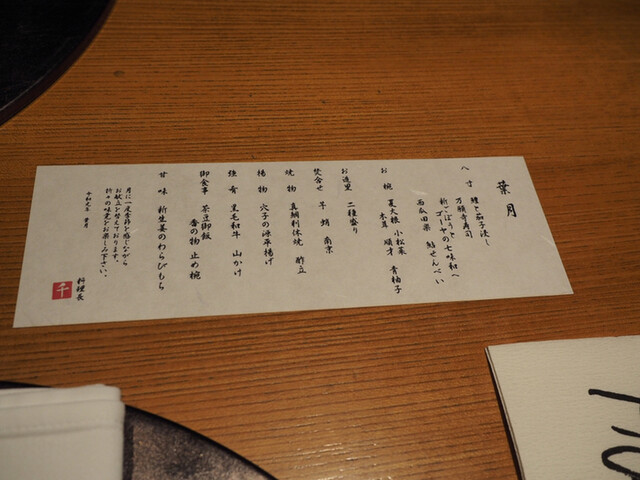 葉月
八寸 鱧と茄子浸し
万願寺寿司
新ごぼうとゴーヤの七味和へ
西瓜田楽 鮎せんべい
お椀 夏大根 小松菜
木茸 順才 青柚子
お造里 二種盛り
焚合せ 芋 蛸 南京
焼物 真鯛利休焼 酢立
揚物 穴子の源平揚げ
強肴 黒毛和牛 山かけ
御食事 茶豆御飯
香の物 止め椀
甘味 新生姜のわらびもち
月に一度季節を感じながら
お献立を替えております。
折々の味覚をお楽しみ下さい。
令和元年 葉月
料理長
千